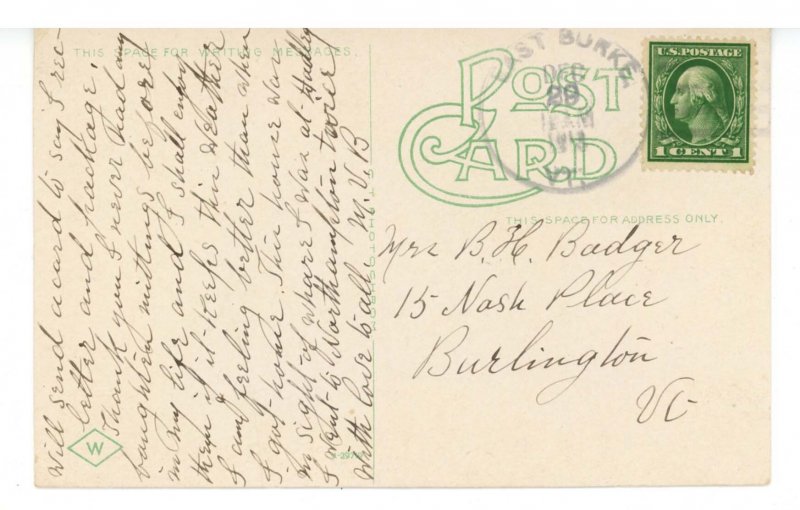 THIS SPACE FOR WRITING MESSAGES.
POST CARD
THIS SPACE FOR ADDRESS ONLY.
EAST BURKE
DEC
VT.
U.S. POSTAGE
1 CENT 1
Will send a card to say I rec-
letter and package.
Thank you I never had any
boughten mittings before
in my life and I shall enjoy
them if it keeps this weather
I am feeling better than when
I got home. This house was
in sight of where I was at Hadley
I went to Northampton twice
with love to all M.V.B
W
Mrs B. H. Badger
15 Nash Place
Burlington
Vt